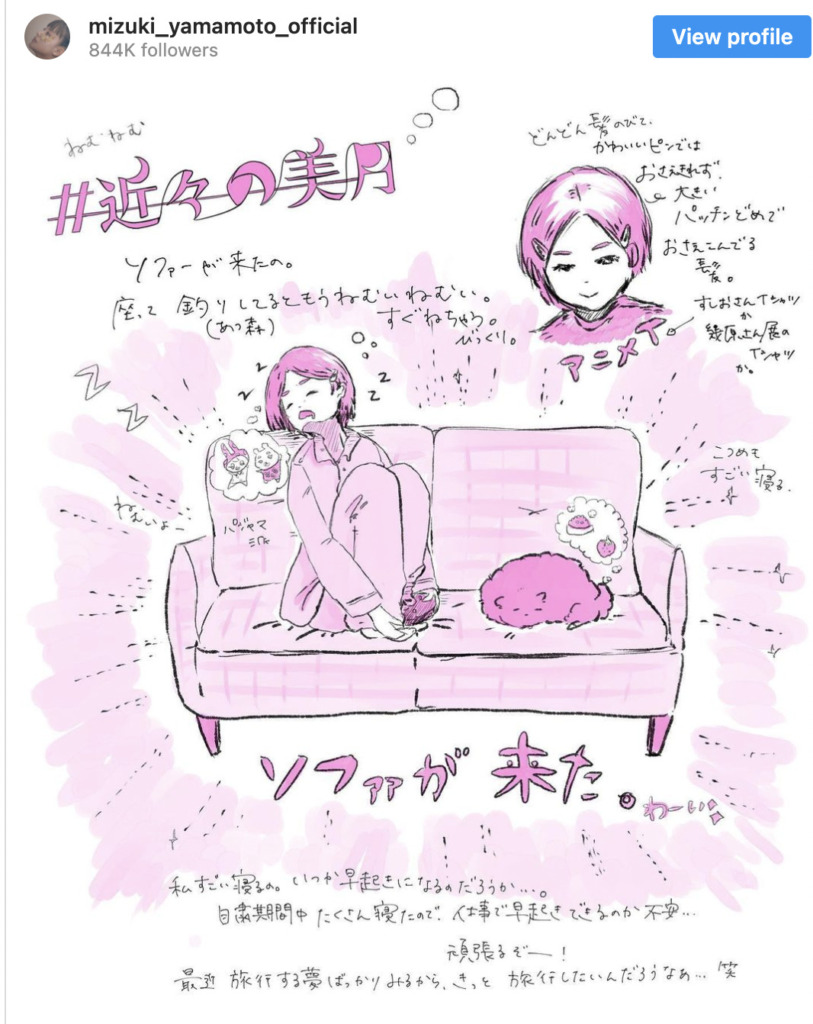 mizuki_yamamoto_official
844K followers
View profile
ねむねむ
#近々の美月
どんどん髪のびて、
かわいいピンでは
おさえきれず、
大きい
パッチンどめで
おさえこんでる
髪。
ソファーが来たの。
座って釣りしてるともうねむいねむい。
(あつ森)
すぐねちゃう。
びっくり。
アニメT。
すしおさんTシャツ
か
幾原さん展の
Tシャツ
か。
z
z
z
z
z
z
こつめも
すごい寝る。
パジャマ
ソファが来た。
わーい!
私すごい寝るの。いつか早起きになるのだろうか…。
自粛期間中たくさん寝たので、仕事で早起きできるのか不安…
頑張るぞー!
最近旅行する夢ばっかりみるから、きっと旅行したいんだろうなぁ…笑